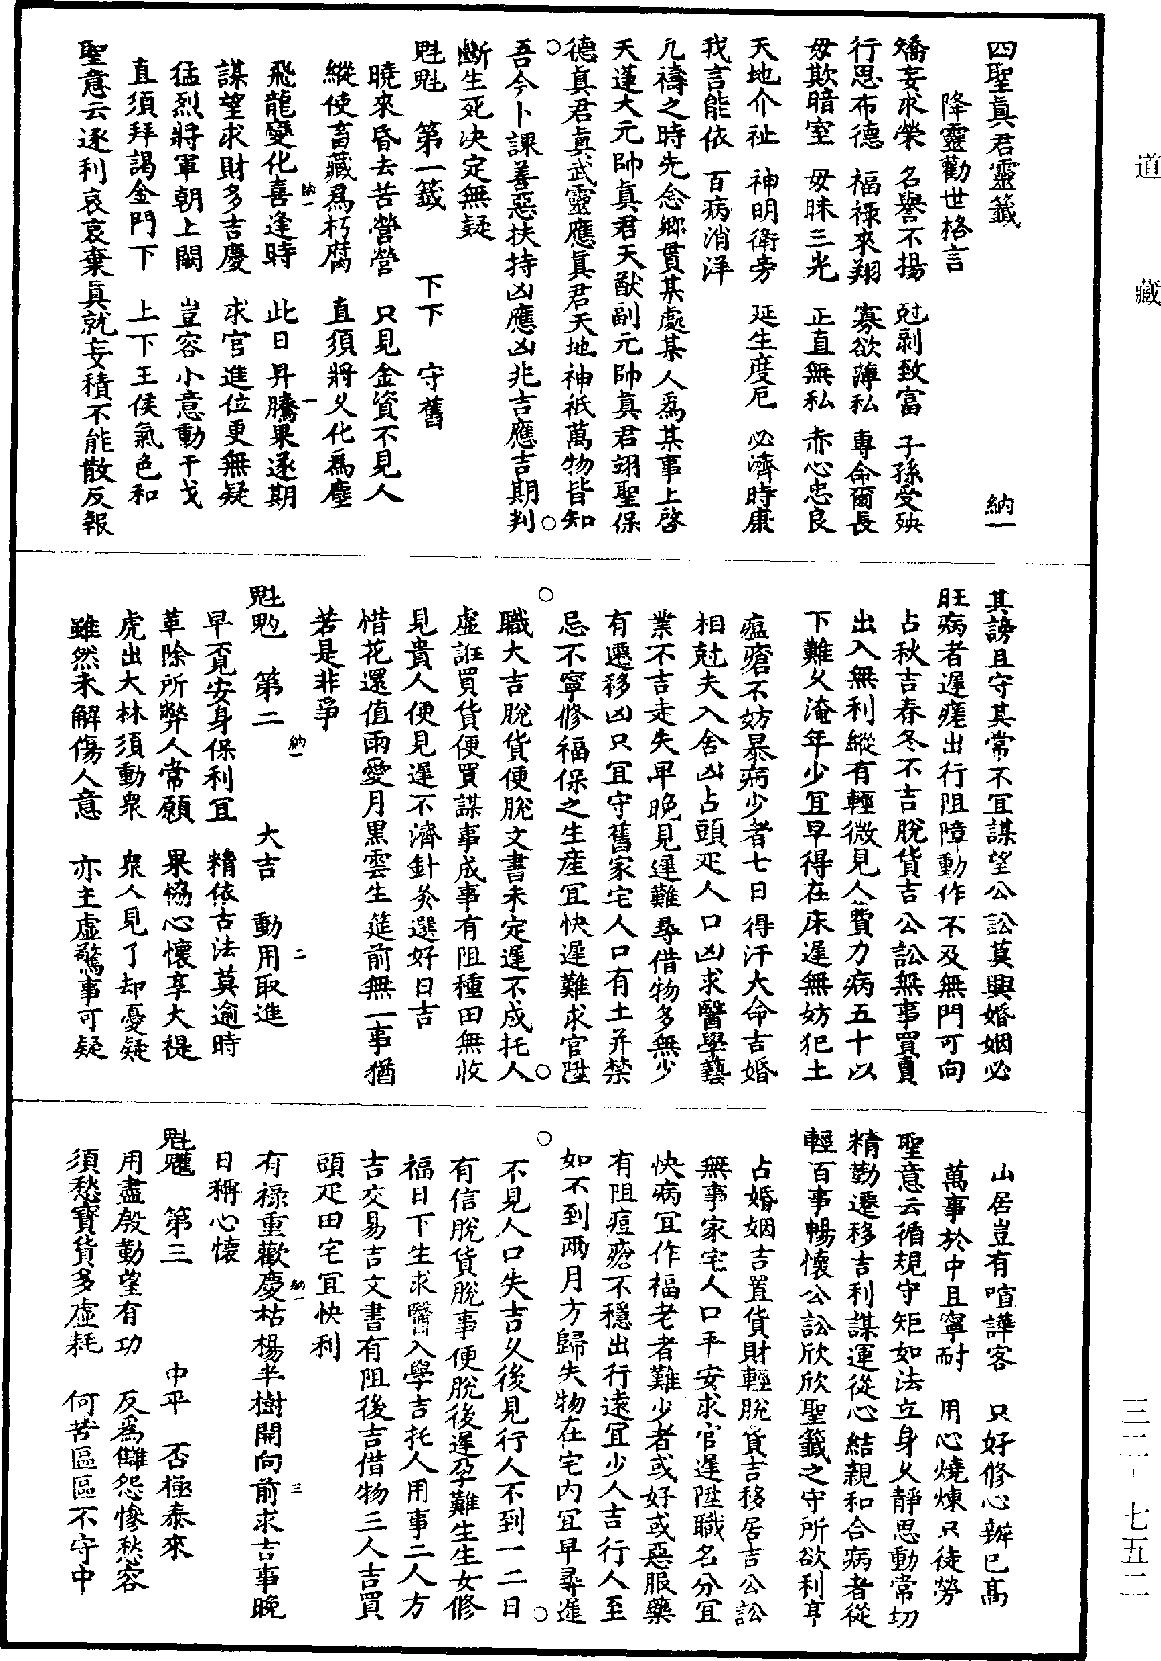 道藏
四聖真君靈籤
納一
降靈勸世格言
矯妄求榮 名譽不揚 尅剥致富 子孫受殃
行思布德 福禄來翔 寡欲薄私 專命爾長
毋欺暗室 毋昧三光 正直無私 赤心忠良
天地介祉 神明衛旁 延生度厄 必濟時康
我言能依 百病消洋
凡禱之時先念鄉貫某處某人爲某事上啓
天蓬大元帥真君天猷副元帥真君翊聖保
德真君真武靈應真君天地神祇萬物皆知
吾今卜課善惡扶持凶應凶兆吉應吉期判
斷生死決定無疑
第一籤 下下 守舊
曉來昏去苦營營 只見金資不見人
縱使畜藏爲朽腐 直須將久化爲塵
飛龍變化喜逢時 此日昇騰果逐期
納一 一
謀望求財多吉慶 求官進位更無疑
猛烈將軍朝上闕 豈容小意動干戈
直須拜謁金門下 上下王侯氣色和
聖意云逐利哀哀棄真就妄積不能散反報
其謗且守其常不宜謀望公訟莫興婚姻必
旺病者遲瘥出行阻障動作不及無門可向
占秋吉春冬不吉脱貨吉公訟無事買賣
出入無利縱有輕微見人費力病五十以
下難久淹年少宜早得在床遲無妨犯土
瘟瘡不妨暴病少者七日得汗大命吉婚
相尅夫入舍凶占頭疋人口凶求醫學藝
業不吉走失早晚見遲難尋借物多無少
有遷移凶只宜守舊家宅人口有土并禁
忌不寧修福保之生産宜快遲難求官陞
職大吉脱貨便脱文書未定遲不成托人
虚誑買貨便買謀事成事有阻種田無收
見貴人便見遲不濟針灸選好日吉
惜花還值雨愛月黑雲生筵前無一事猶
若是非爭
第二 大吉 動用取進
納一 二
早覓安身保利宜 精依古法莫逾時
革除所弊人常願 果恊心懷享大禔
虎出大林須動衆 衆人見了却憂疑
雖然未解傷人意 亦主虚驚事可疑
山居豈有喧譁客 只好修心辦已高
萬事於中且寧耐 用心燒煉只徒勞
聖意云循規守矩如法立身乆靜思動常切
精勤遷移吉利謀運從心結親和合病者從
輕百事暢懷公訟欣欣聖籤之守所欲利亨
占婚姻吉置貨財輕脱貨吉移居吉公訟
無事家宅人口平安求官遲陞職名分宜
快病宜作福老者難少者或好或惡服藥
有阻痘瘡不穩出行遠宜少人吉行人至
如不到兩月方歸失物在宅内宜早尋遲
不見人口失吉久後見行人不到一二日
有信脱貨脱事便脱後遲孕難生生女修
福日下生求醫入學吉托人用事二人方
吉交易吉文書有阻後吉借物三人吉買
頭疋田宅宜快利
有禄重歡慶枯楊半樹開向前求吉事晚
納一 三
日稱心懷
第三 中平 否極泰來
用盡殷勤望有功 反爲讎怨慘愁容
須愁寶貨多虚耗 何苦區區不守中
三二-七五二